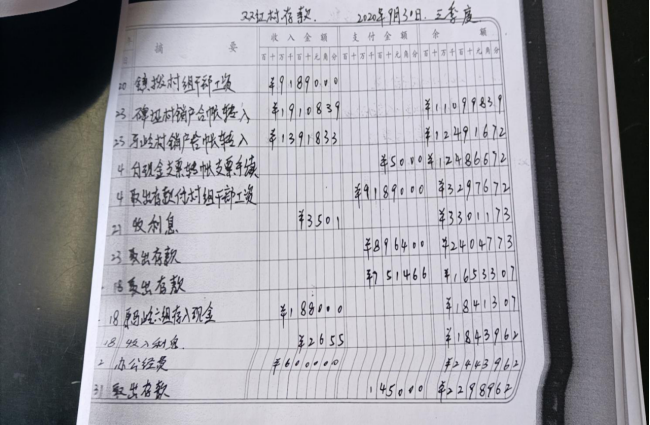 双红村存款. 2020年9月30日. 三季度
摘 要 收入金额 支付金额 余 额
百十万千百十元角分 百十万千百十元角分 百十万千百十元角分
20 镇拨村组干部工资 ¥9189000
23 村销户合帐转入 ¥1910839 ¥11099839
23 村销户合帐转入 ¥1391833 ¥12491672
4 付现金支票转帐支票手续 ¥5000 ¥12486672
4 取出存款付村组干部工资 ¥9189000 ¥3297672
21 收利息 ¥3501 ¥3301173
23 取出存款 ¥896400 ¥2404773
18 取出存款 ¥751466 ¥1653307
18 六组存入现金 ¥188000 ¥1841307
18 收入利息 ¥2655 ¥1843962
2 办公经费 ¥600000 ¥2443962
31 取出存款 145000 ¥2298962